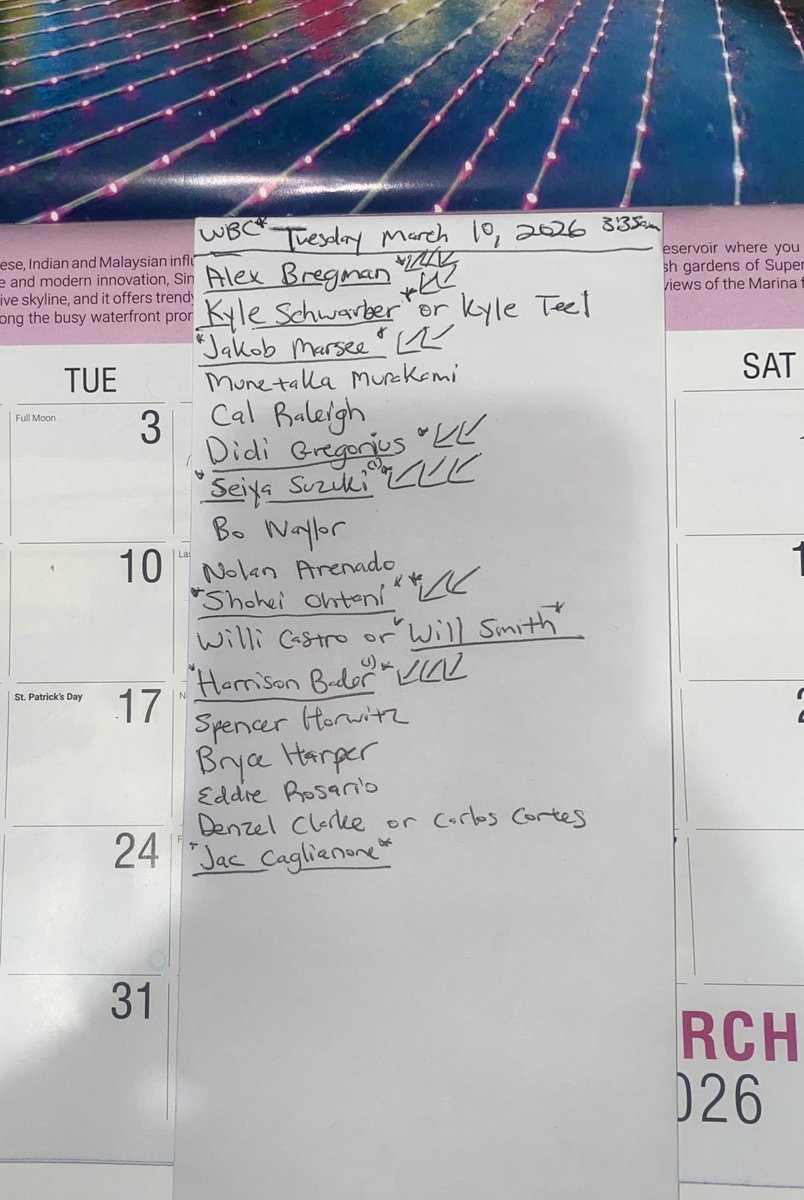 WBC* Tuesday March 10, 2026 3:35am
ese, Indian and Malaysian infl
e and modern innovation, Sin
ive skyline, and it offers trendy
ong the busy waterfront pror
eservoir where you
sh gardens of Super
views of the Marina f
Alex Bregman *
Kyle Schwarber * or Kyle Teel
*Jakob Marsee *
Munetaka Murakami
Cal Raleigh
Didi Gregorius *
*Seiya Suzuki (1)*
Bo Naylor
Nolan Arenado
*Shohei Ohtani * *
Willi Castro or *Will Smith*
*Harrison Bader (1)*
Spencer Horwitz
Bryce Harper
Eddie Rosario
Denzel Clarke or Carlos Cortes
*Jac Caglianone*
TUE
SAT
Full Moon
3
10
La
St. Patrick's Day
17
N
24
31
RCH
026